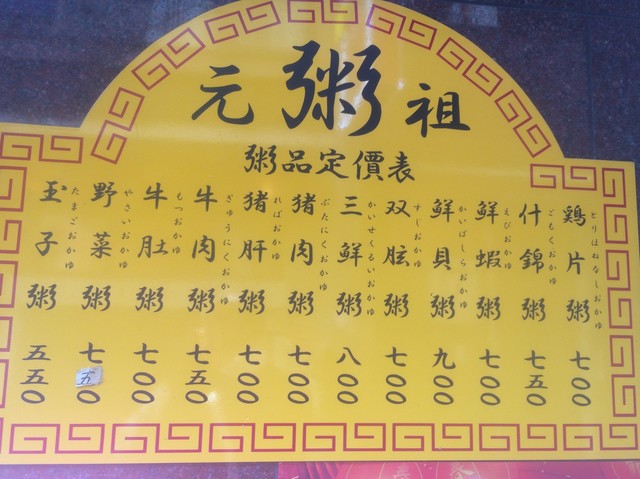 元粥祖
粥品定價表
とりほねなしおかゆ
鶏片粥七〇〇
ごもくおかゆ
什錦粥七五〇
えびおかゆ
鮮蝦粥七〇〇
かいばしらおかゆ
鮮貝粥九〇〇
すじおかゆ
双胘粥七〇〇
かいせくるいおかゆ
三鮮粥八〇〇
ぶたにくおかゆ
猪肉粥七〇〇
ればおかゆ
猪肝粥七〇〇
ぎゅうにくおかゆ
牛肉粥七五〇
もつおかゆ
牛肚粥七〇〇
やさいおかゆ
野菜粥七五〇
たまごおかゆ
玉子粥五五〇